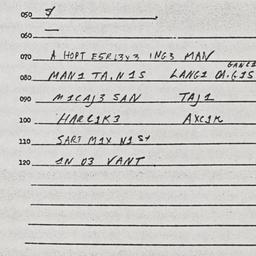 050
060
070 A HOPT E5RL3V3 ING3 MAN
080 MAN1 TA.N1S LANG1
090 M1CAJ3 SAN TAJ1
100 HARC1K3 AXC1K
110 SART M1X N1
120 1N 03 VANT